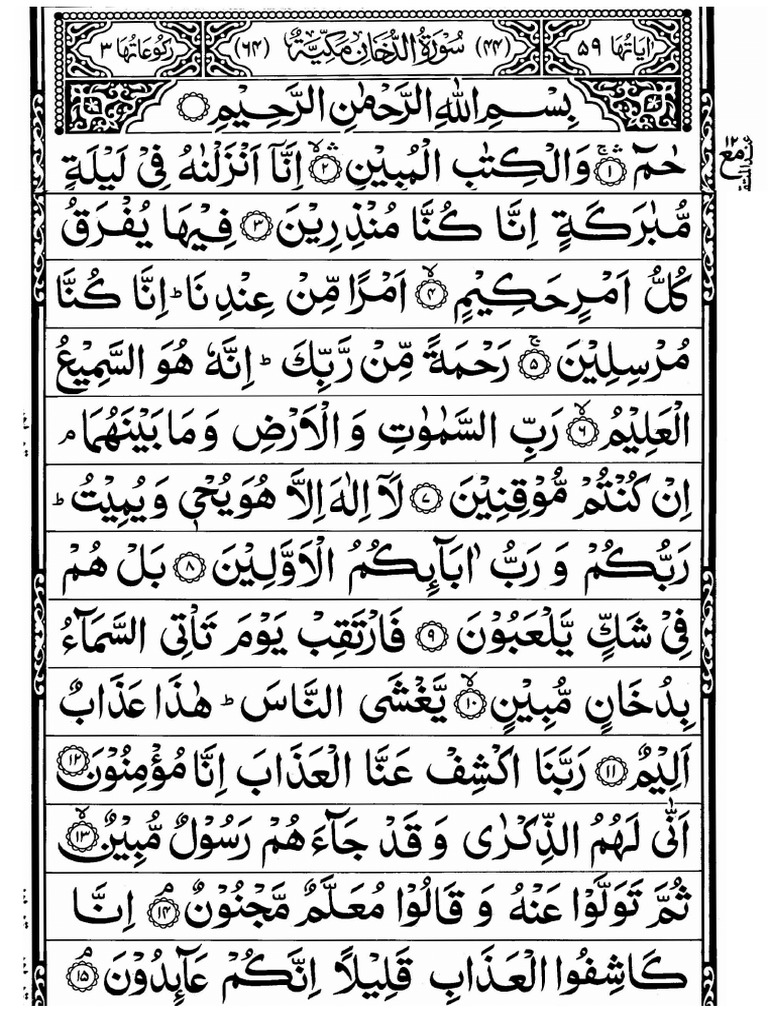 اٰیَاتُهَا ۵۹ (۴۴) سُوْرَةُ الدُّخَانِ مَكِّيَّةٌ (۶۴) رُكُوْعَاتُهَا ۳
بِسْمِ اللّٰهِ الرَّحْمٰنِ الرَّحِيْمِ
حٰمٓ ۚۛ‏﴿۱﴾ وَالْكِتٰبِ الْمُبِيْنِ ۙۛ‏﴿۲﴾ اِنَّاۤ اَنْزَلْنٰهُ فِيْ لَيْلَةٍ
مُّبٰرَكَةٍ اِنَّا كُنَّا مُنْذِرِيْنَ ﴿۳﴾ فِيْهَا يُفْرَقُ
كُلُّ اَمْرٍ حَكِيْمٍ ۙ﴿۴﴾ اَمْرًا مِّنْ عِنْدِنَا ؕ اِنَّا كُنَّا
مُرْسِلِيْنَ ۚ﴿۵﴾ رَحْمَةً مِّنْ رَّبِّكَ ؕ اِنَّهٗ هُوَ السَّمِيْعُ
الْعَلِيْمُ ۙ﴿۶﴾ رَبِّ السَّمٰوٰتِ وَالْاَرْضِ وَمَا بَيْنَهُمَا ۘ
اِنْ كُنْتُمْ مُّوْقِنِيْنَ ﴿۷﴾ لَاۤ اِلٰهَ اِلَّا هُوَ يُحْيٖ وَيُمِيْتُ ؕ
رَبُّكُمْ وَرَبُّ اٰبَآىِٕكُمُ الْاَوَّلِيْنَ ﴿۸﴾ بَلْ هُمْ
فِيْ شَكٍّ يَّلْعَبُوْنَ ﴿۹﴾ فَارْتَقِبْ يَوْمَ تَاْتِي السَّمَآءُ
بِدُخَانٍ مُّبِيْنٍ ۙ﴿۱۰﴾ يَّغْشَى النَّاسَ ؕ هٰذَا عَذَابٌ
اَلِيْمٌ ﴿۱۱﴾ رَبَّنَا اكْشِفْ عَنَّا الْعَذَابَ اِنَّا مُؤْمِنُوْنَ ﴿۱۲﴾
اَنّٰى لَهُمُ الذِّكْرٰى وَقَدْ جَآءَهُمْ رَسُوْلٌ مُّبِيْنٌ ۙ﴿۱۳﴾
ثُمَّ تَوَلَّوْا عَنْهُ وَقَالُوْا مُعَلَّمٌ مَّجْنُوْنٌ ۘ﴿۱۴﴾ اِنَّا
كَاشِفُوا الْعَذَابِ قَلِيْلًا اِنَّكُمْ عَآىِٕدُوْنَ ۘ﴿۱۵﴾